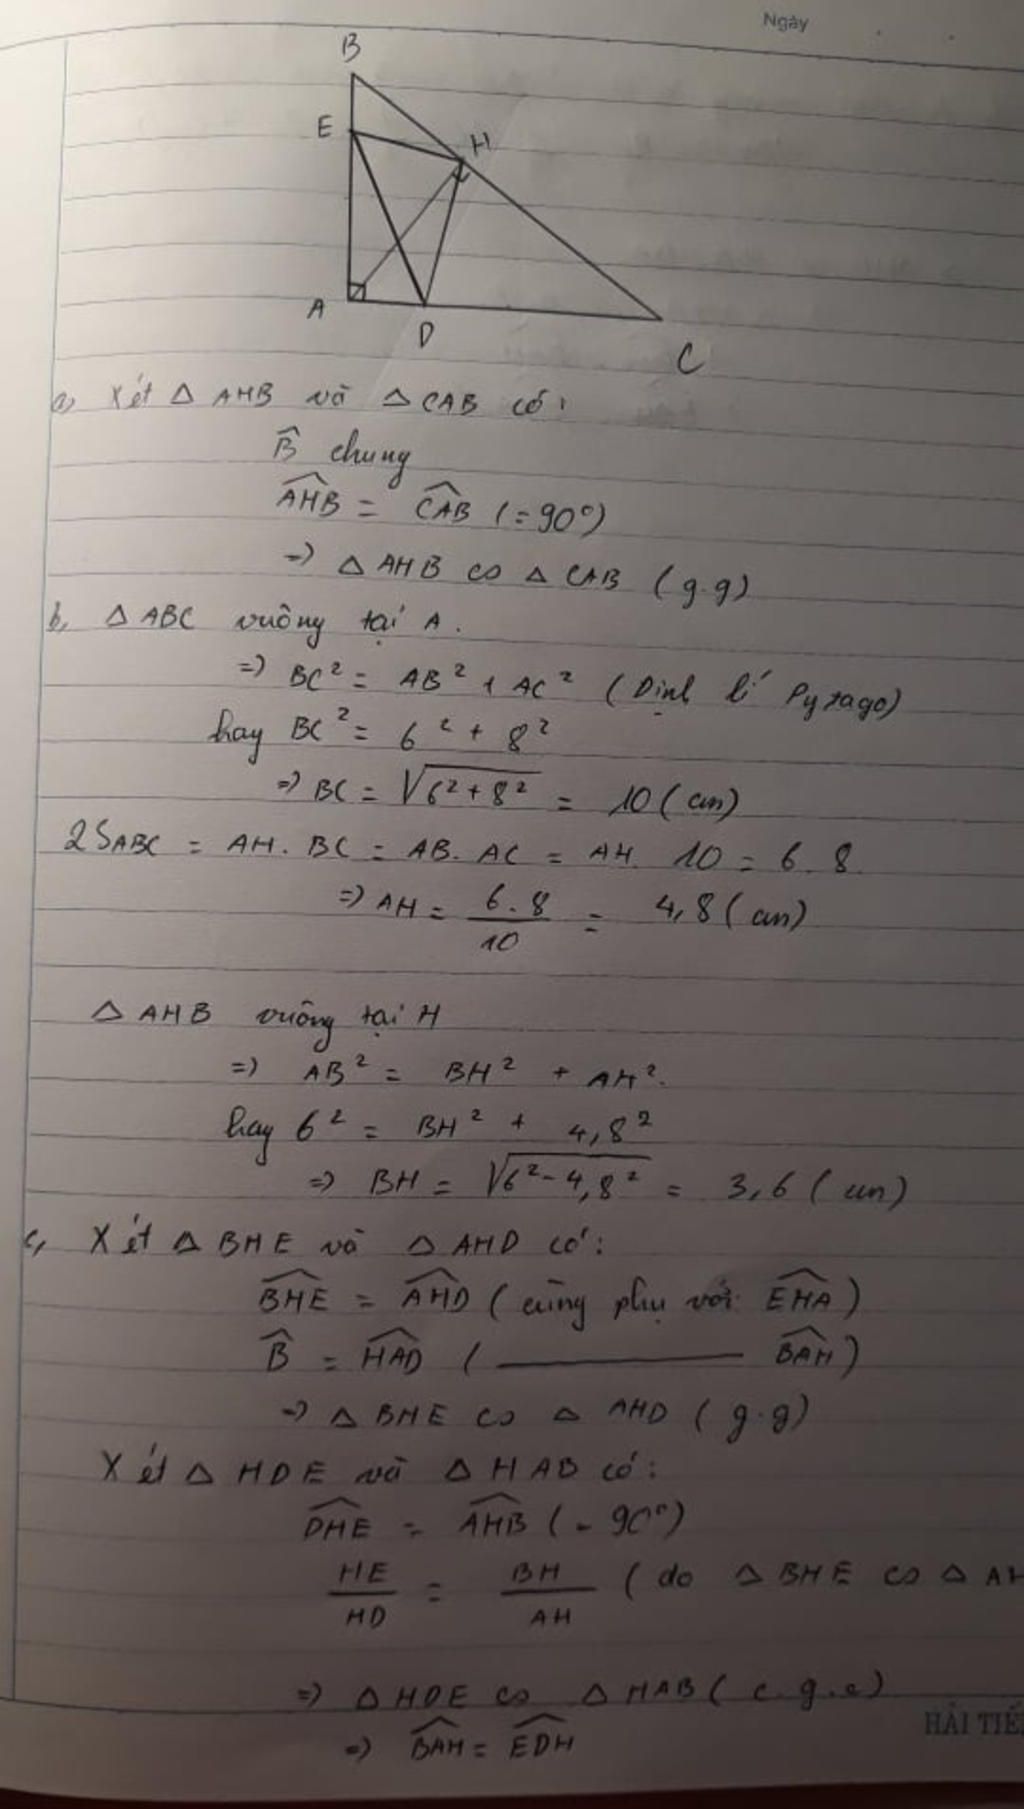 Ngày
B
E
H
A
D
C
a, Xét △ AHB và △ CAB có:
B̂ chung
AHB̂ = CAB̂ (=90°)
=> △ AHB ∽ △ CAB (g.g)
b, △ ABC vuông tại A.
=> BC² = AB² + AC² (Định lí Pytago)
hay BC² = 6² + 8²
=> BC = √6²+8² = 10 (cm)
2SABC = AH. BC = AB. AC = AH. 10 = 6. 8
=> AH = 6.8/10 = 4,8 (cm)
△ AHB vuông tại H
=> AB² = BH² + AH².
hay 6² = BH² + 4,8²
=> BH = √6²-4,8² = 3,6 (cm)
c, Xét △ BHE và △ AHD có:
BHÊ = AHD̂ (cùng phụ với EHÂ)
B̂ = HAD̂ ( ——— BAĤ)
=> △ BHE ∽ △ AHD (g.g)
Xét △ HDE và △ HAB có:
DHÊ = AHB̂ (= 90°)
HE/HD = BH/AH (do △ BHE ∽ △ AH
=> △ HDE ∽ △ HAB (c.g.c)
=> BAĤ = EDĤ
HẢI TIẾ